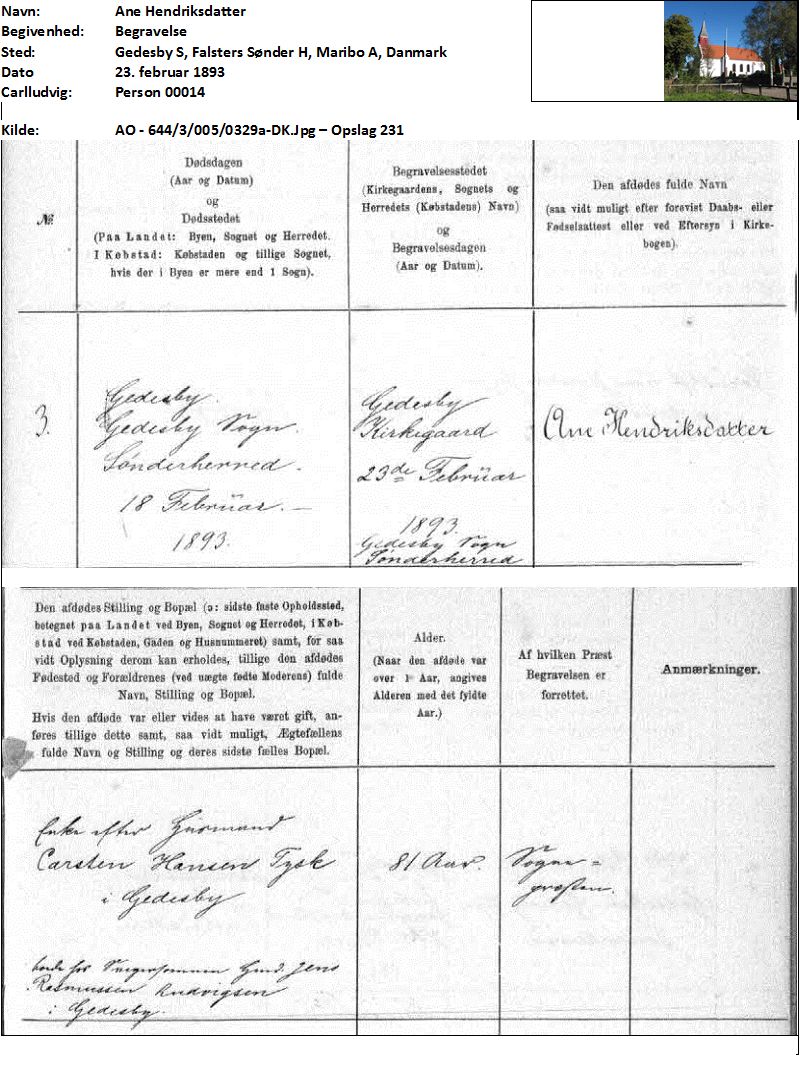 Navn: Ane Hendriksdatter
Begivenhed: Begravelse
Sted: Gedesby S, Falsters Sønder H, Maribo A, Danmark
Dato 23. februar 1893
Carlludvig: Person 00014
Kilde: AO - 644/3/005/0329a-DK.Jpg – Opslag 231
№
Dødsdagen
(Aar og Datum)
og
Dødsstedet
(Paa Landet: Byen, Sognet og Herredet.
I Købstad: Købstaden og tillige Sognet,
hvis der i Byen er mere end 1 Sogn).
Begravelsesstedet
(Kirkegaardens, Sognets og
Herredets (Købstadens) Navn)
og
Begravelsesdagen
(Aar og Datum).
Den afdødes fulde Navn
(saa vidt muligt efter forevist Daabs- eller
Fødselsattest eller ved Eftersyn i Kirke-
bogen).
3.
Gedesby.
Gedesby Sogn.
Sønderherred.
18 Februar. —
1893.
Gedesby
Kirkegaard
23de Februar
1893.
Gedesby Sogn
Sønderherred
Ane Hendriksdatter
Den afdødes Stilling og Bopæl (ɔ: sidste faste Opholdssted,
betegnet paa Landet ved Byen, Sognet og Herredet, i Køb-
stad ved Købstaden, Gaden og Husnummeret) samt, for saa
vidt Oplysning derom kan erholdes, tillige den afdødes
Fødested og Forældrenes (ved uægte fødte Moderens) fulde
Navn, Stilling og Bopæl.
Hvis den afdøde var eller vides at have været gift, an-
føres tillige dette samt, saa vidt muligt, Ægtefællens
fulde Navn og Stilling og deres sidste fælles Bopæl.
Alder.
(Naar den afdøde var
over 1 Aar, angives
Alderen med det fyldte
Aar.)
Af hvilken Præst
Begravelsen er
forrettet.
Anmærkninger.
Enke efter Husmand
Carsten Hansen Tysk
i Gedesby
81 Aar.
Sogne=
præsten.
Svigersønnen Jens
Rasmussen Ludvigsen
i Gedesby.